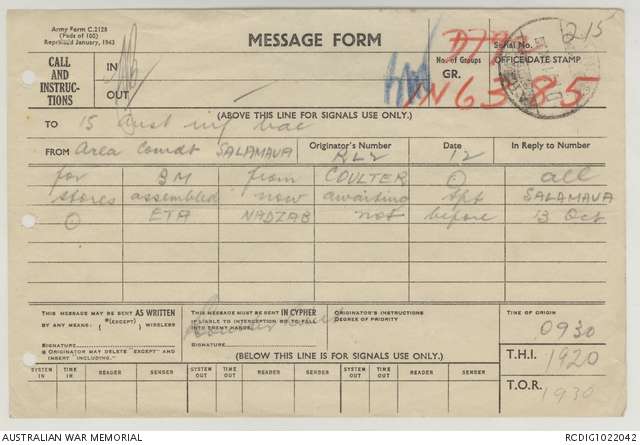 Army Form C.2128
(Pads of 100)
Reprinted January, 1943
MESSAGE FORM
Serial No. 215
CALL AND INSTRUCTIONS
IN
OUT
No. of Groups
GR.
OFFICE DATE STAMP
IN 6385
(ABOVE THIS LINE FOR SIGNALS USE ONLY.)
TO 15 Aust inf bde
FROM Area Comdt SALAMAUA Originator's Number RL2 Date 12 In Reply to Number
for BM from COULTER ⊙ all
stores assembled now awaiting tpt SALAMAUA
⊙ ETA NADZAB not before 13 Oct
THIS MESSAGE MAY BE SENT AS WRITTEN
BY ANY MEANS. { *(EXCEPT) } WIRELESS
SIGNATURE
* ORIGINATOR MAY DELETE "EXCEPT" AND INSERT "INCLUDING."
THIS MESSAGE MUST BE SENT IN CYPHER
IF LIABLE TO INTERCEPTION OR TO FALL INTO ENEMY HANDS.
SIGNATURE
ORIGINATOR'S INSTRUCTIONS
DEGREE OF PRIORITY
TIME OF ORIGIN
0930
(BELOW THIS LINE IS FOR SIGNALS USE ONLY.)
T.H.I. 1920
SYSTEM IN TIME IN READER SENDER SYSTEM OUT TIME OUT READER SENDER SYSTEM OUT TIME OUT READER SENDER
T.O.R. 1930
AUSTRALIAN WAR MEMORIAL
RCDIG1022042